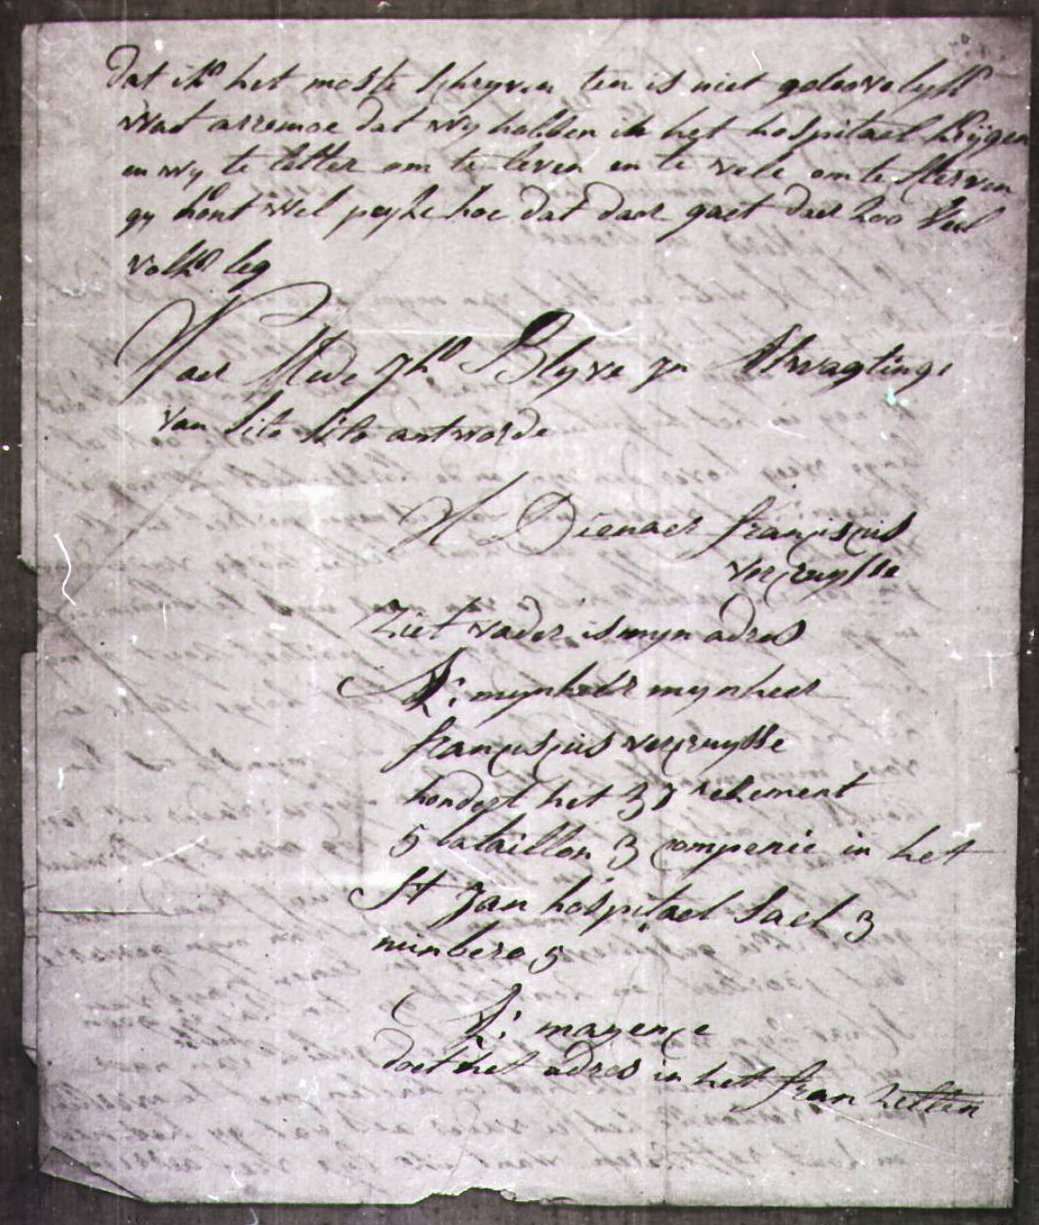 dat ik het moste schryven ten is niet geloovelyk
wat arremoe dat wy hebben in het hospitael krijgen
en wy te letter om te leven en te vele om te sterven
gy kont wel peyse hoe dat daer gaet daer zoo veel
volk leg
Waer Mede Ik Blyve In Afwagtinge
van sito sito antworde
U Dienaer franciscuis
vercruysse
Ziet vader is myn adres
A: mynheer mynheer
franciscuis vercruysse
hondert het 37 rekement
5 bataillon 3 compenie in het
St Jan hospitael Sael 3
numbero 5
A: mayence
doet het adres in het fran